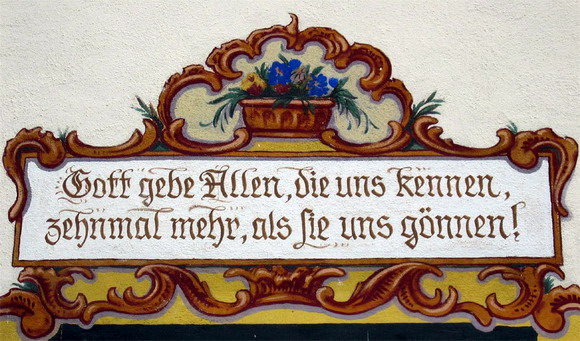 Gott gebe Allen, die uns kennen,
zehnmal mehr, als sie uns gönnen!